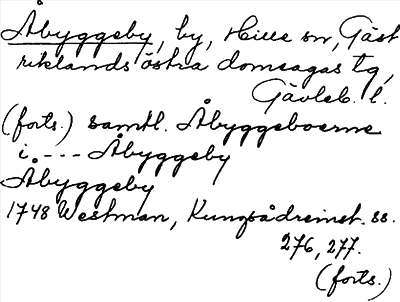 Åbyggeby, by, Hille sn, Gäst
riklands östra domsagas tg,
Gävleb. l.
(forts.) samtl. Åbyggeboerne
i --- Åbyggeby
Åbyggeby
1748 Westman, Kungsådreinst. ss.
276, 277.
(forts.)